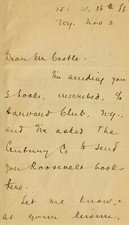 15 W. 16th St
N.Y. Nov 3
Dear Mr Castle:
I'm sending you
3 books, inscribed, to
Harvard Club, N.Y.,
and I've asked The
Century Co to send
you Roosevelt book
here.
Let me know,
at your leisure,